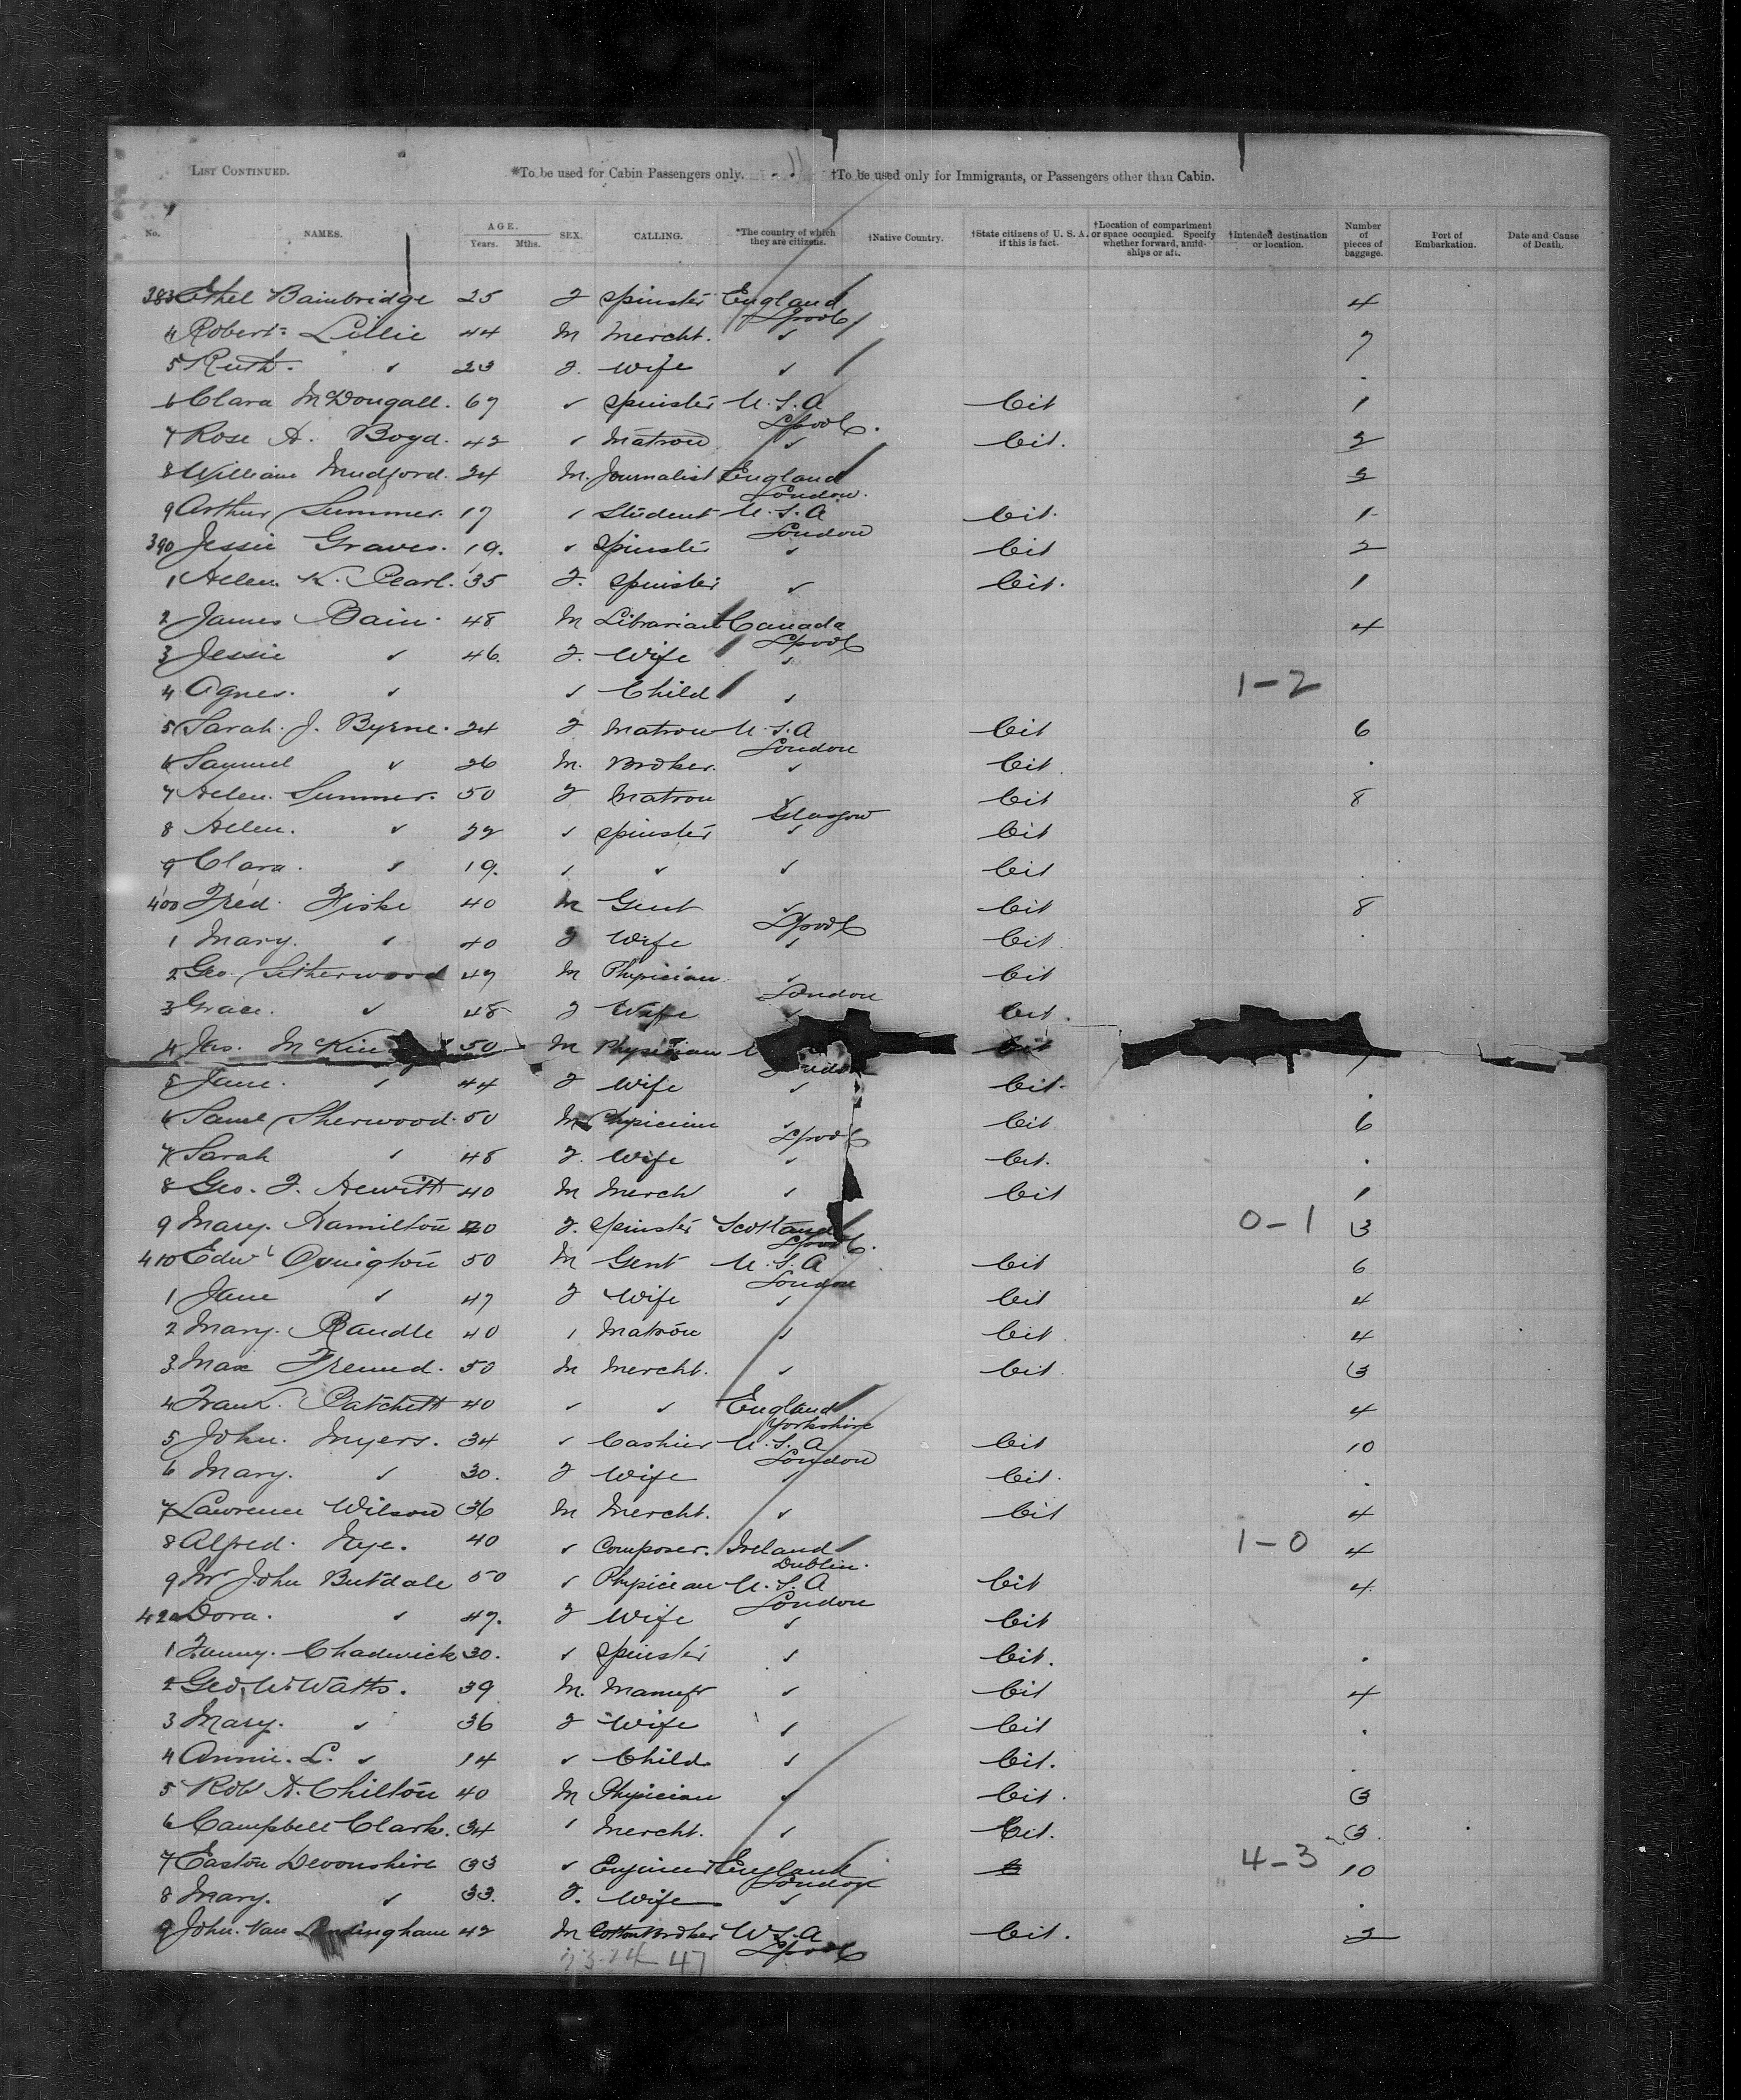 LIST CONTINUED. *To be used for Cabin Passengers only. †To be used only for Immigrants, or Passengers other than Cabin.
No. NAMES. AGE. Years. Mths. SEX. CALLING. *The country of which they are citizens. †Native Country. †State citizens of U. S. A. if this is fact. †Location of compartment or space occupied. Specify whether forward, amidships or aft. †Intended destination or location. Number of pieces of baggage. Port of Embarkation. Date and Cause of Death.
383 Ethel Bainbridge 25 F Spinster England 4
Lpool
4 Robert Lillie 44 M Mercht. ✓ 7
5 Ruth. ✓ 23 F. Wife ✓ .
6 Clara McDougall. 67 ✓ Spinster U.S.A Cit 1
Lpool.
7 Rose A. Boyd. 42 ✓ Matron ✓ Cit. 2
8 William Mudford. 24 M. Journalist England 2
London.
9 Arthur Summer. 17 ✓ Student U.S.A Cit. 1
London
390 Jessie Graves. 19. ✓ Spinster ✓ Cit 2
1 Helen K. Pearl. 35 F. Spinster ✓ Cit. 1
2 James Bain. 48 M Librarian Canada 4
Lpool
3 Jessie ✓ 46. F. Wife ✓
4 Agnes. ✓ ✓ Child ✓ 1-2
5 Sarah. J. Byrne. 24 F Matron U.S.A Cit 6
London
6 Samuel ✓ 26 M. Broker. ✓ Cit. .
7 Helen. Summer. 50 F Matron ✓ Cit 8
Glasgow
8 Helen. ✓ 22 ✓ Spinster ✓ Cit
9 Clara. ✓ 19. ✓ ✓ ✓ Cit .
400 Fred. Fiske 40 M Gent ✓ Cit 8
Lpool
1 Mary. ✓ 40 F Wife ✓ Cit .
2 Geo. 47 M Physician ✓ Cit
London
3 Grace. ✓ 48 F Wife Cit.
4 Jas. McKin 50 M Physician Cit
5 Jane. ✓ 44 F Wife ✓ Cit. .
6 Saml Sherwood. 50 M Physician ✓ Cit 6
Lpool
7 Sarah ✓ 48 F. Wife ✓ Cit. .
8 Geo. F. Hewitt 40 M Mercht ✓ Cit 1
9 Mary. Hamilton 20 F. Spinster Scotland 0-1 3
Lpool.
410 Edwd 50 M Gent U.S.A Cit 6
London
1 Jane ✓ 47 F Wife ✓ Cit 4
2 Mary. Randle 40 ✓ Matron ✓ Cit. 4
3 Max Freund. 50 M Mercht. ✓ Cit 3
4 Frank. Patchett 40 ✓ ✓ England 4
Yorkshire
5 John. Myers. 34 ✓ Cashier U.S.A Cit 10
London
6 Mary. ✓ 30. F Wife ✓ Cit. .
7 Lawrence Wilson 36 M Mercht. ✓ Cit 4
8 Alfred. Nye. 40 ✓ Composer. Ireland 1-0 4
Dublin.
9 Mr John Butdale 50 ✓ Physician U.S.A Cit 4
London
420 Dora. ✓ 47. F Wife ✓ Cit
1 Fanny. Chadwick 30. ✓ Spinster ✓ Cit. .
2 Geo. W. Watts. 39 M. Manufr ✓ Cit 4
3 Mary. ✓ 36 F Wife ✓ Cit .
4 Annie. L. ✓ 14 ✓ Child ✓ Cit. .
5 Robt A. Chilton 40 M Physician ✓ Cit. 3
6 Campbell Clark. 34 ✓ Mercht. ✓ Cit. 3.
7 Easton Devonshire 33 ✓ Engineer England 4-3 10
London
8 Mary. ✓ 33. F. Wife ✓ .
9 John. Van 42 M Cotton Broker U.S.A Cit. 2
Lpool
47